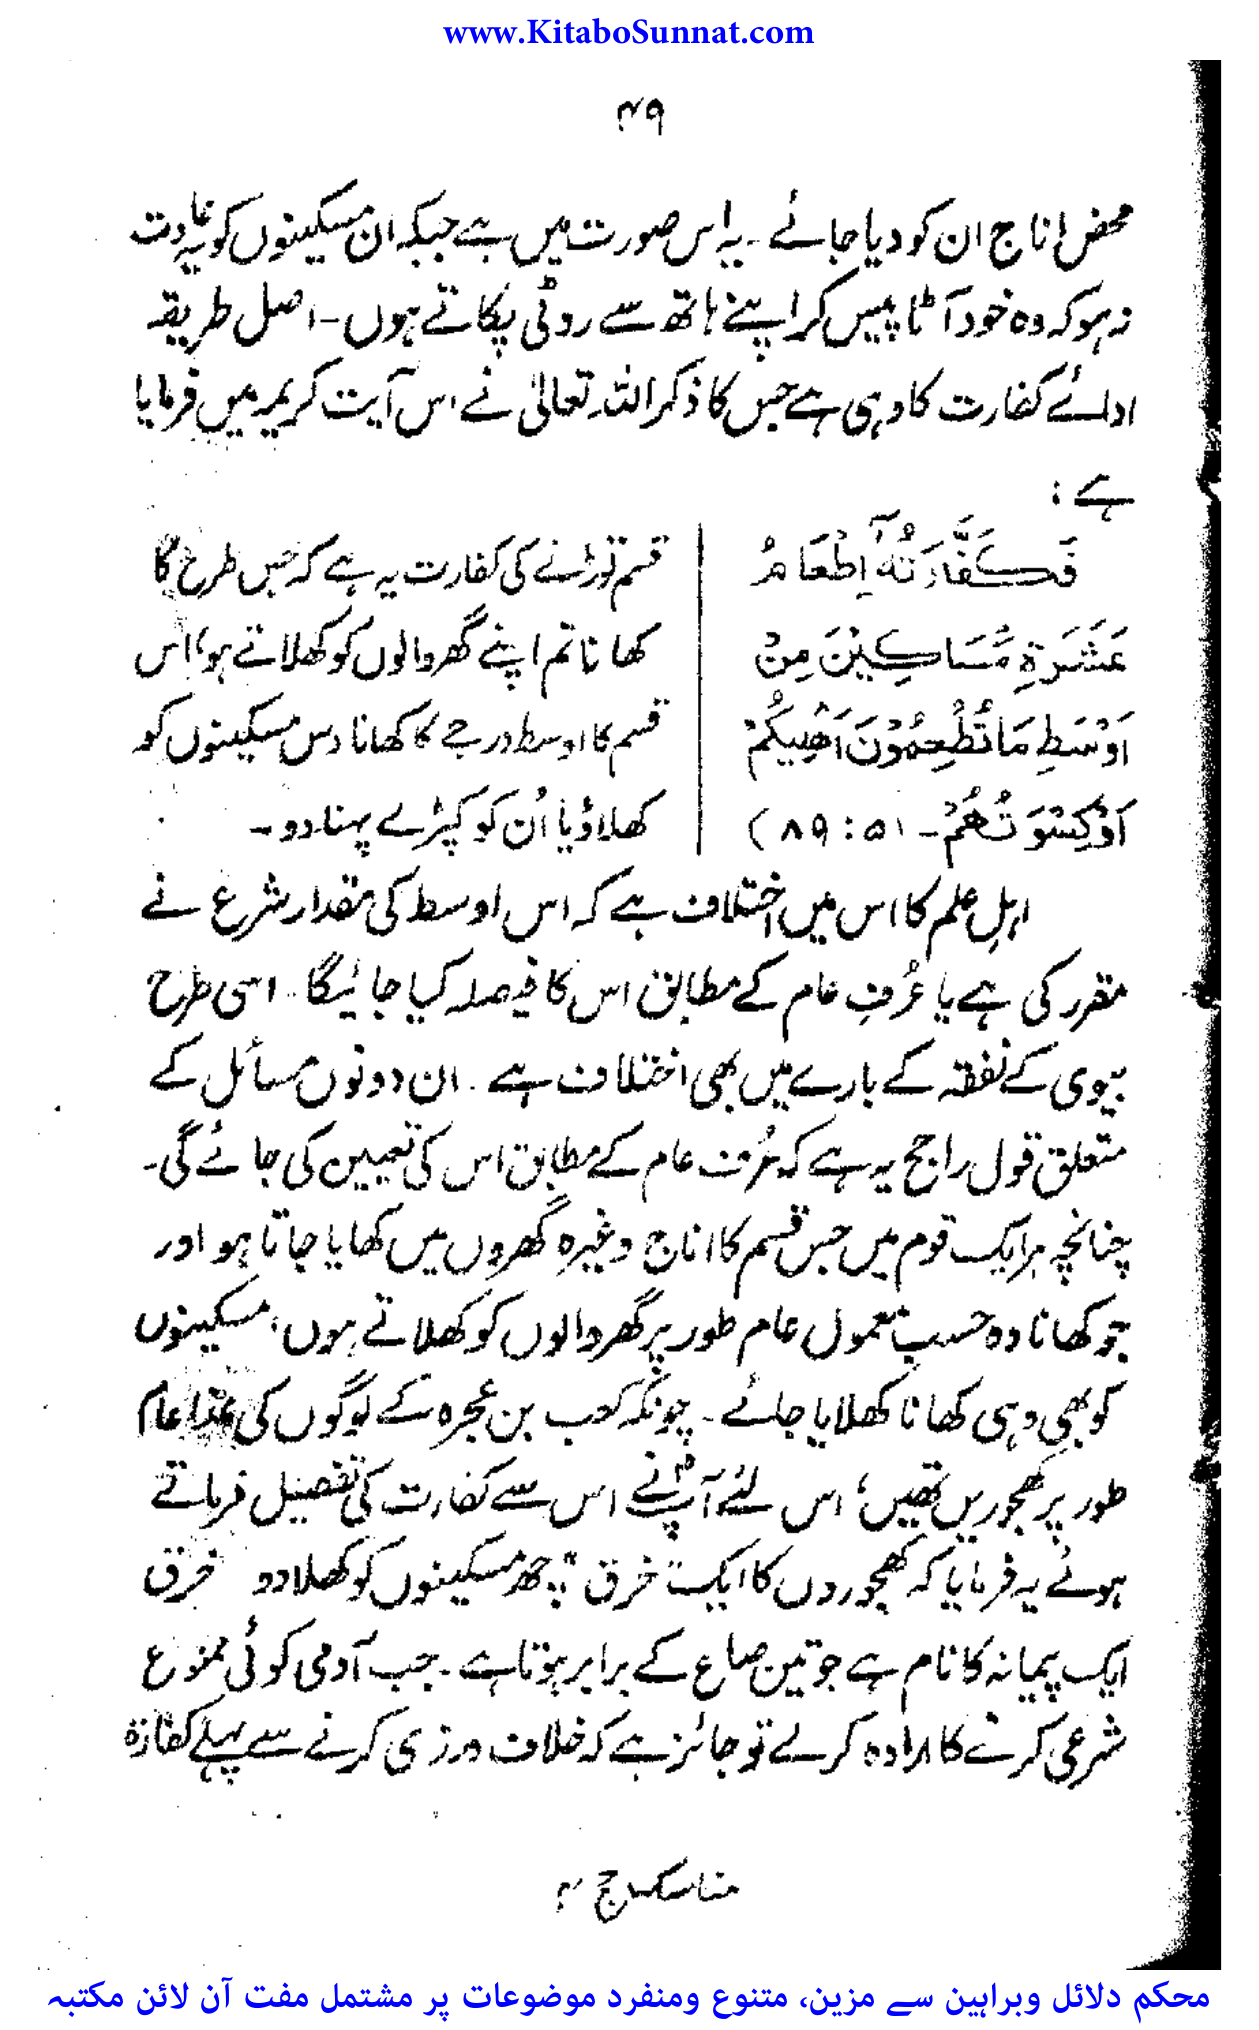 www.KitaboSunnat.com
۴۹
محض اناج ان کو دیا جائے ۔ یہ اس صورت میں ہے جبکہ ان مسکینوں کو یہ عادت
نہ ہو کہ وہ خود آٹا پیس کر اپنے ہاتھ سے روٹی پکاتے ہوں ۔ اصل طریقہ
ادائے کفارت کا وہی ہے جس کا ذکر اللہ تعالیٰ نے اس آیت کریمہ میں فرمایا
ہے :
فَكَفَّارَتُهٗٓ اِطْعَامُ
عَشَرَةِ مَسَاكِيْنَ مِنْ
اَوْسَطِ مَا تُطْعِمُوْنَ اَهْلِيْكُمْ
اَوْ كِسْوَتُهُمْ ۔ (۵ : ۸۹)
قسم توڑنے کی کفارت یہ ہے کہ جس طرح کا
کھانا تم اپنے گھر والوں کو کھلاتے ہو، اس
قسم کا اوسط درجے کا کھانا دس مسکینوں کو
کھلاؤ یا اُن کو کپڑے پہنا دو ۔
اہلِ علم کا اس میں اختلاف ہے کہ اس اوسط کی مقدار شرع نے
مقرر کی ہے یا عُرفِ عام کے مطابق اس کا فیصلہ کیا جائیگا ۔ اسی طرح
بیوی کے نفقہ کے بارے میں بھی اختلاف ہے ۔ ان دونوں مسائل کے
متعلق قول راجح یہ ہے کہ عُرف عام کے مطابق اس کی تعیین کی جائے گی ۔
چنانچہ ہر ایک قوم میں جس قسم کا اناج وغیرہ گھروں میں کھایا جاتا ہو اور
جو کھانا وہ حسبِ معمول عام طور پر گھر والوں کو کھلاتے ہوں، مسکینوں
کو بھی وہی کھانا کھلایا جائے ۔ چونکہ کعب بن عجرہ کے لوگوں کی غذا عام
طور پر کھجوریں تھیں؛ اس لئے آپؐ نے اس سے کفارت کی تفصیل فرماتے
ہوئے یہ فرمایا کہ کھجوروں کا ایک "خرق" چھ مسکینوں کو کھلا دو خرق
ایک پیمانہ کا نام ہے جو تین صاع کے برابر ہوتا ہے ۔ جب آدمی کوئی ممنوع
شرعی کرنے کا ارادہ کرلے تو جائز ہے کہ خلاف ورزی کرنے سے پہلے کفارۃ
مناسک حج ۴
محکم دلائل وبراہین سے مزین، متنوع ومنفرد موضوعات پر مشتمل مفت آن لائن مکتبہ